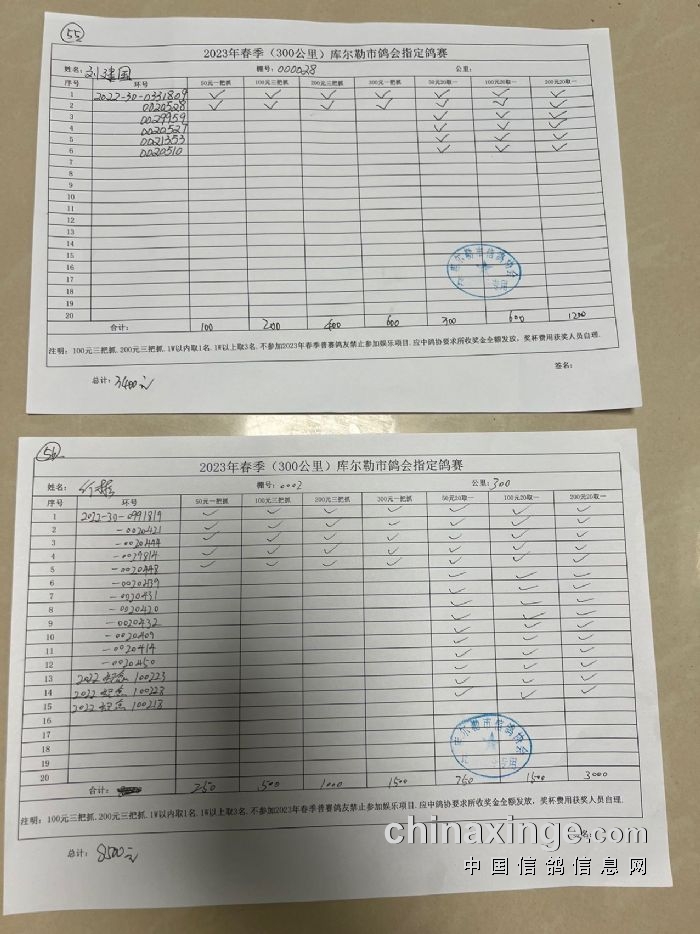 55
2023年春季（300公里）库尔勒市鸽会指定鸽赛
姓名：刘建国 棚号：000028 公里：
序号 环号 50元一把抓 100元三把抓 200元三把抓 300元一把抓 50元20取一 100元20取一 200元20取一
1 2022-30-0331809 ✓ ✓ ✓ ✓ ✓ ✓ ✓
2 0020528 ✓ ✓ ✓ ✓ ✓ ✓ ✓
3 0029959 ✓ ✓ ✓
4 0020527 ✓ ✓ ✓
5 0021353 ✓ ✓ ✓
6 0020510 ✓ ✓ ✓
7
8
9
10
11
12
13
14
15
16
17
18
19
20
库尔勒市信鸽协会
专用
合计： 100 200 400 600 300 600 1200
注明：100元三把抓.200元三把抓.1W以内取1名.1W以上取3名.不参加2023年春季普赛鸽友禁止参加娱乐项目.应中鸽协要求所收奖金全额发放，奖杯费用获奖人员自理.
总计：3400元 签名：
56
2023年春季（300公里）库尔勒市鸽会指定鸽赛
姓名： 棚号：0002 公里：300
序号 环号 50元一把抓 100元三把抓 200元三把抓 300元一把抓 50元20取一 100元20取一 200元20取一
1 2022-30-0991819 ✓ ✓ ✓ ✓ ✓ ✓ ✓
2 -0020421 ✓ ✓ ✓ ✓ ✓ ✓ ✓
3 -0020444 ✓ ✓ ✓ ✓ ✓ ✓ ✓
4 -0029814 ✓ ✓ ✓ ✓ ✓ ✓ ✓
5 -0020448 ✓ ✓ ✓ ✓ ✓ ✓ ✓
6 -0020439 ✓ ✓ ✓
7 -0020431 ✓ ✓ ✓
8 -0020420 ✓ ✓ ✓
9 -0020432 ✓ ✓ ✓
10 -0020409 ✓ ✓ ✓
11 -0020414 ✓ ✓ ✓
12 -0020450 ✓ ✓ ✓
13 2022 纪念 100223 ✓ ✓ ✓
14 2022 纪念 100228 ✓ ✓ ✓
15 2022 纪念 100218 ✓ ✓ ✓
16
17
18
19
20
库尔勒市信鸽协会
专用
合计： 250 500 1000 1500 750 1500 3000
注明：100元三把抓.200元三把抓.1W以内取1名.1W以上取3名.不参加2023年春季普赛鸽友禁止参加娱乐项目.应中鸽协要求所收奖金全额发放，奖杯费用获奖人员自理.
总计：8500元
chinaxinge.com
中国信鸽信息网